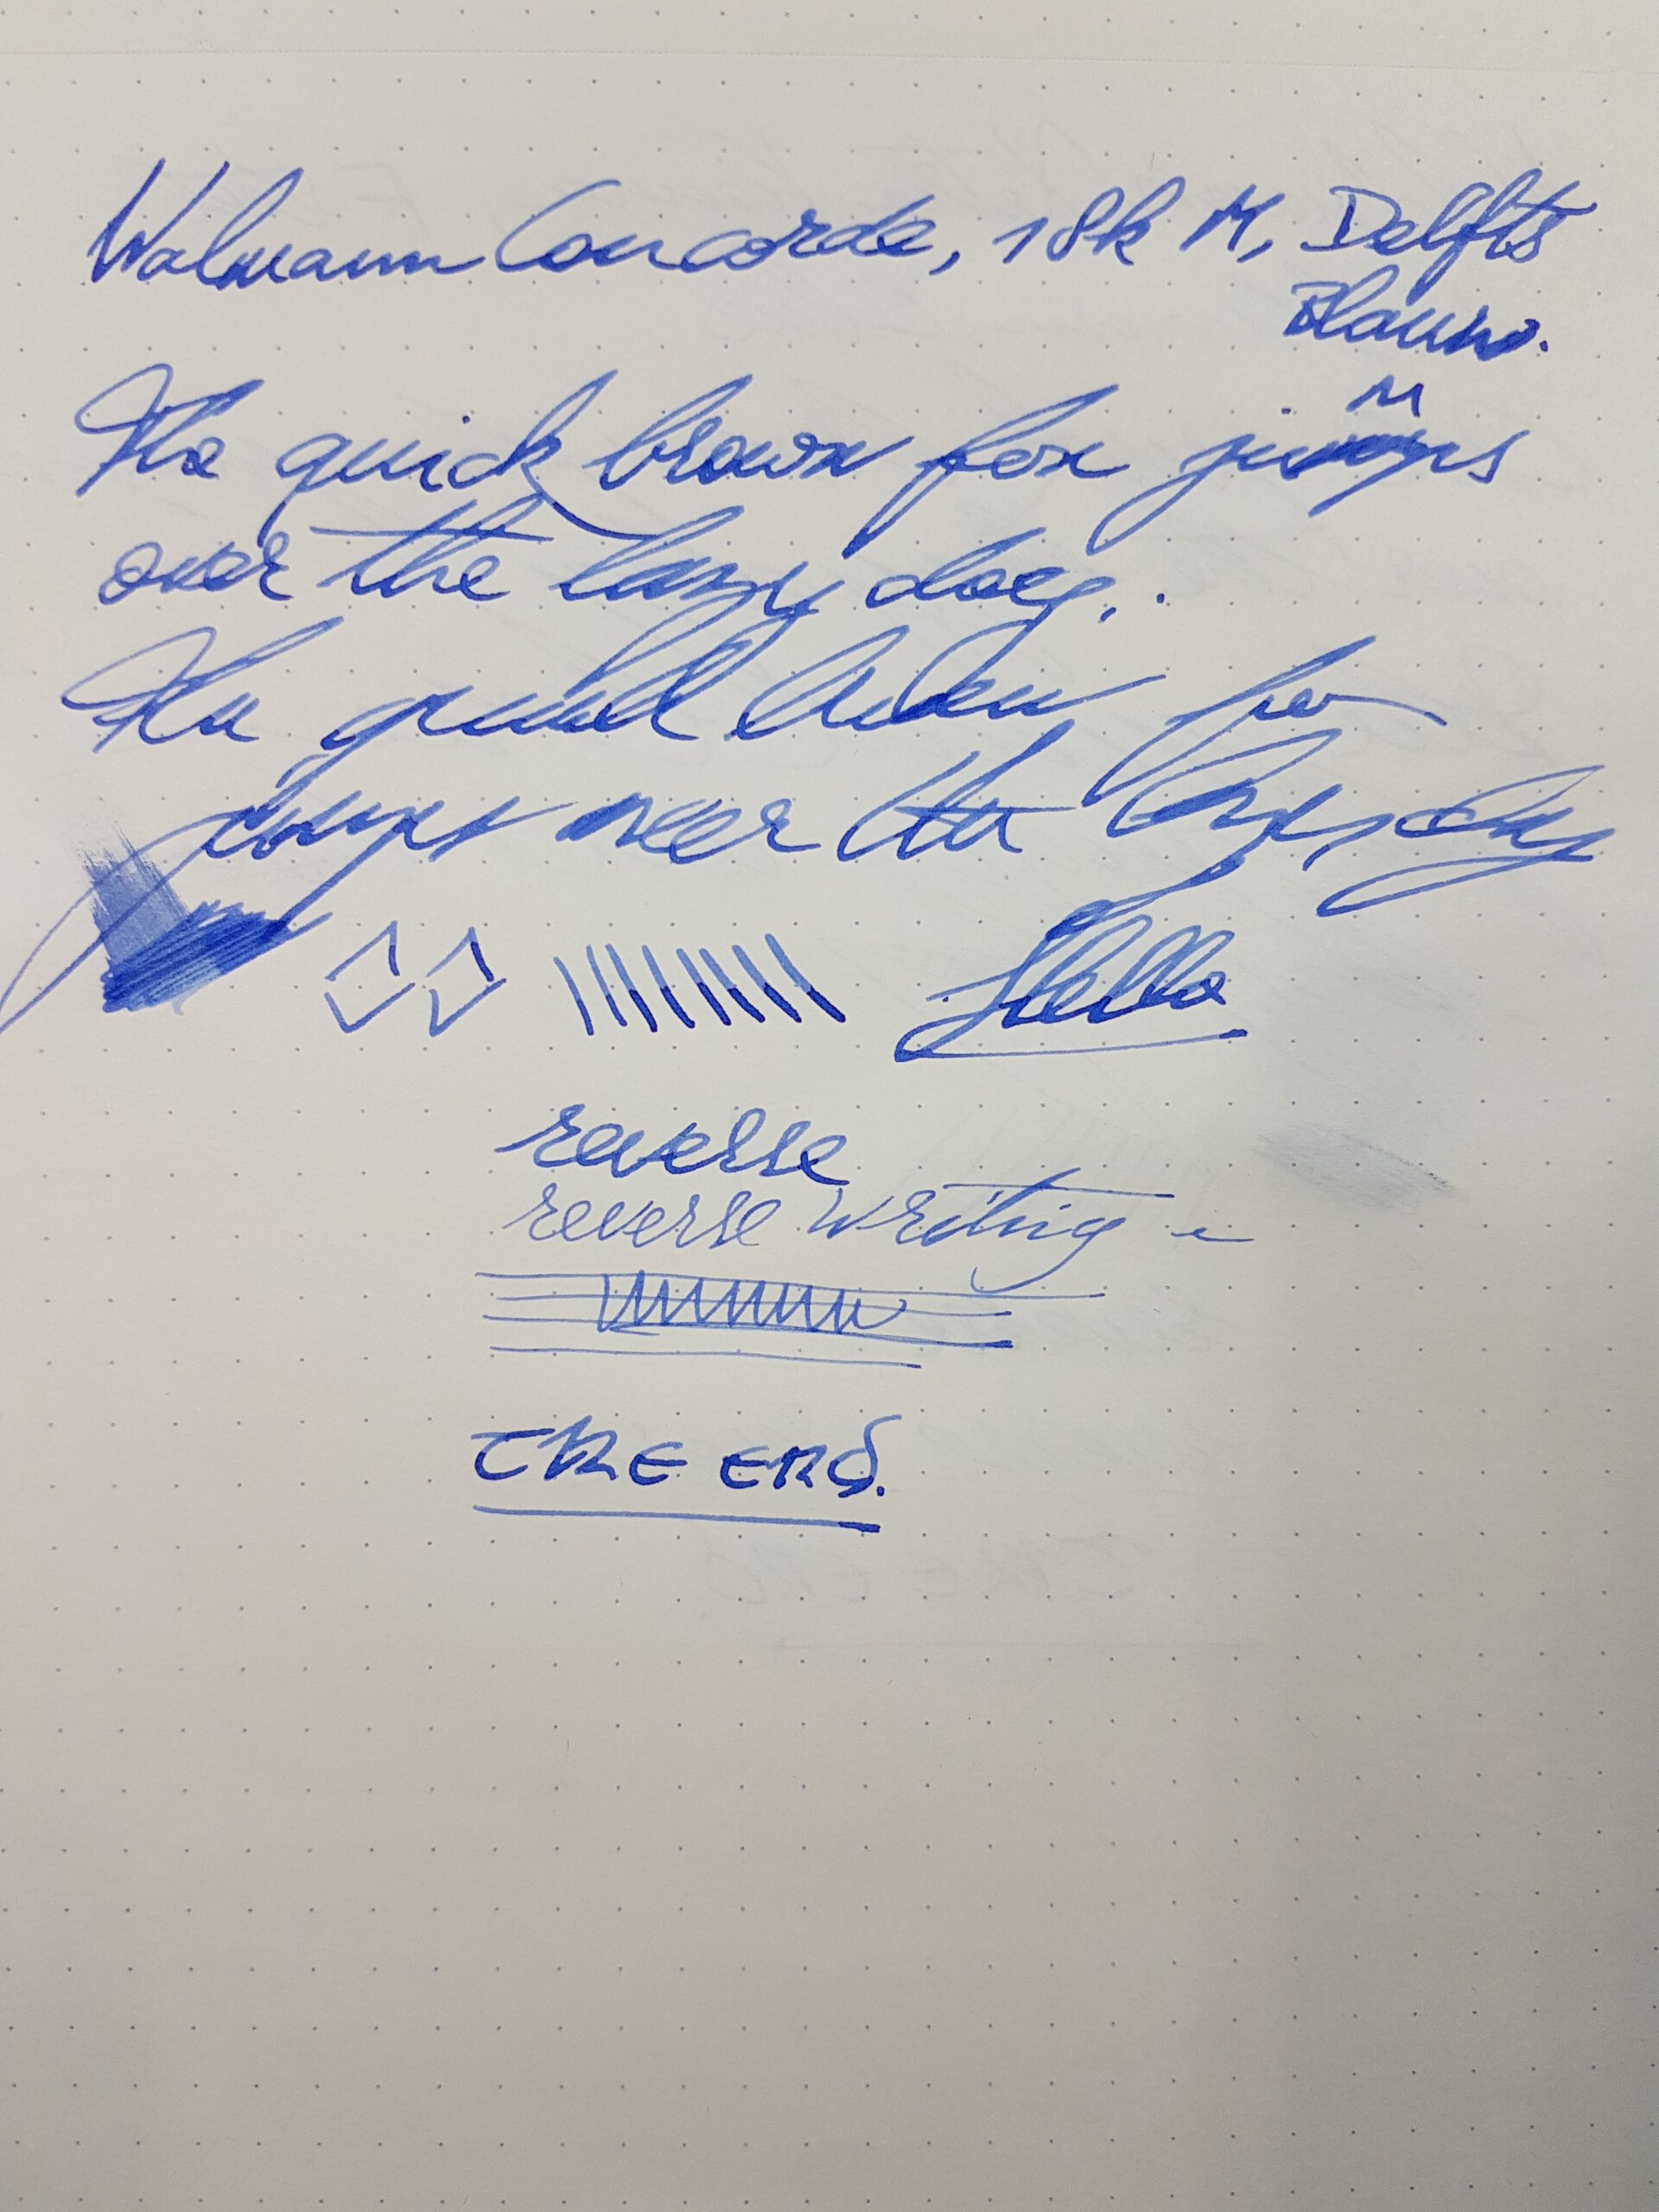 Walmann Concorde, 18k M, Delfts
Blauw.
The quick brown fox jumps
m
over the lazy dog.
The quick brown fox
jumps over the lazy dog
Hello
reverse
reverse writing
THE END.